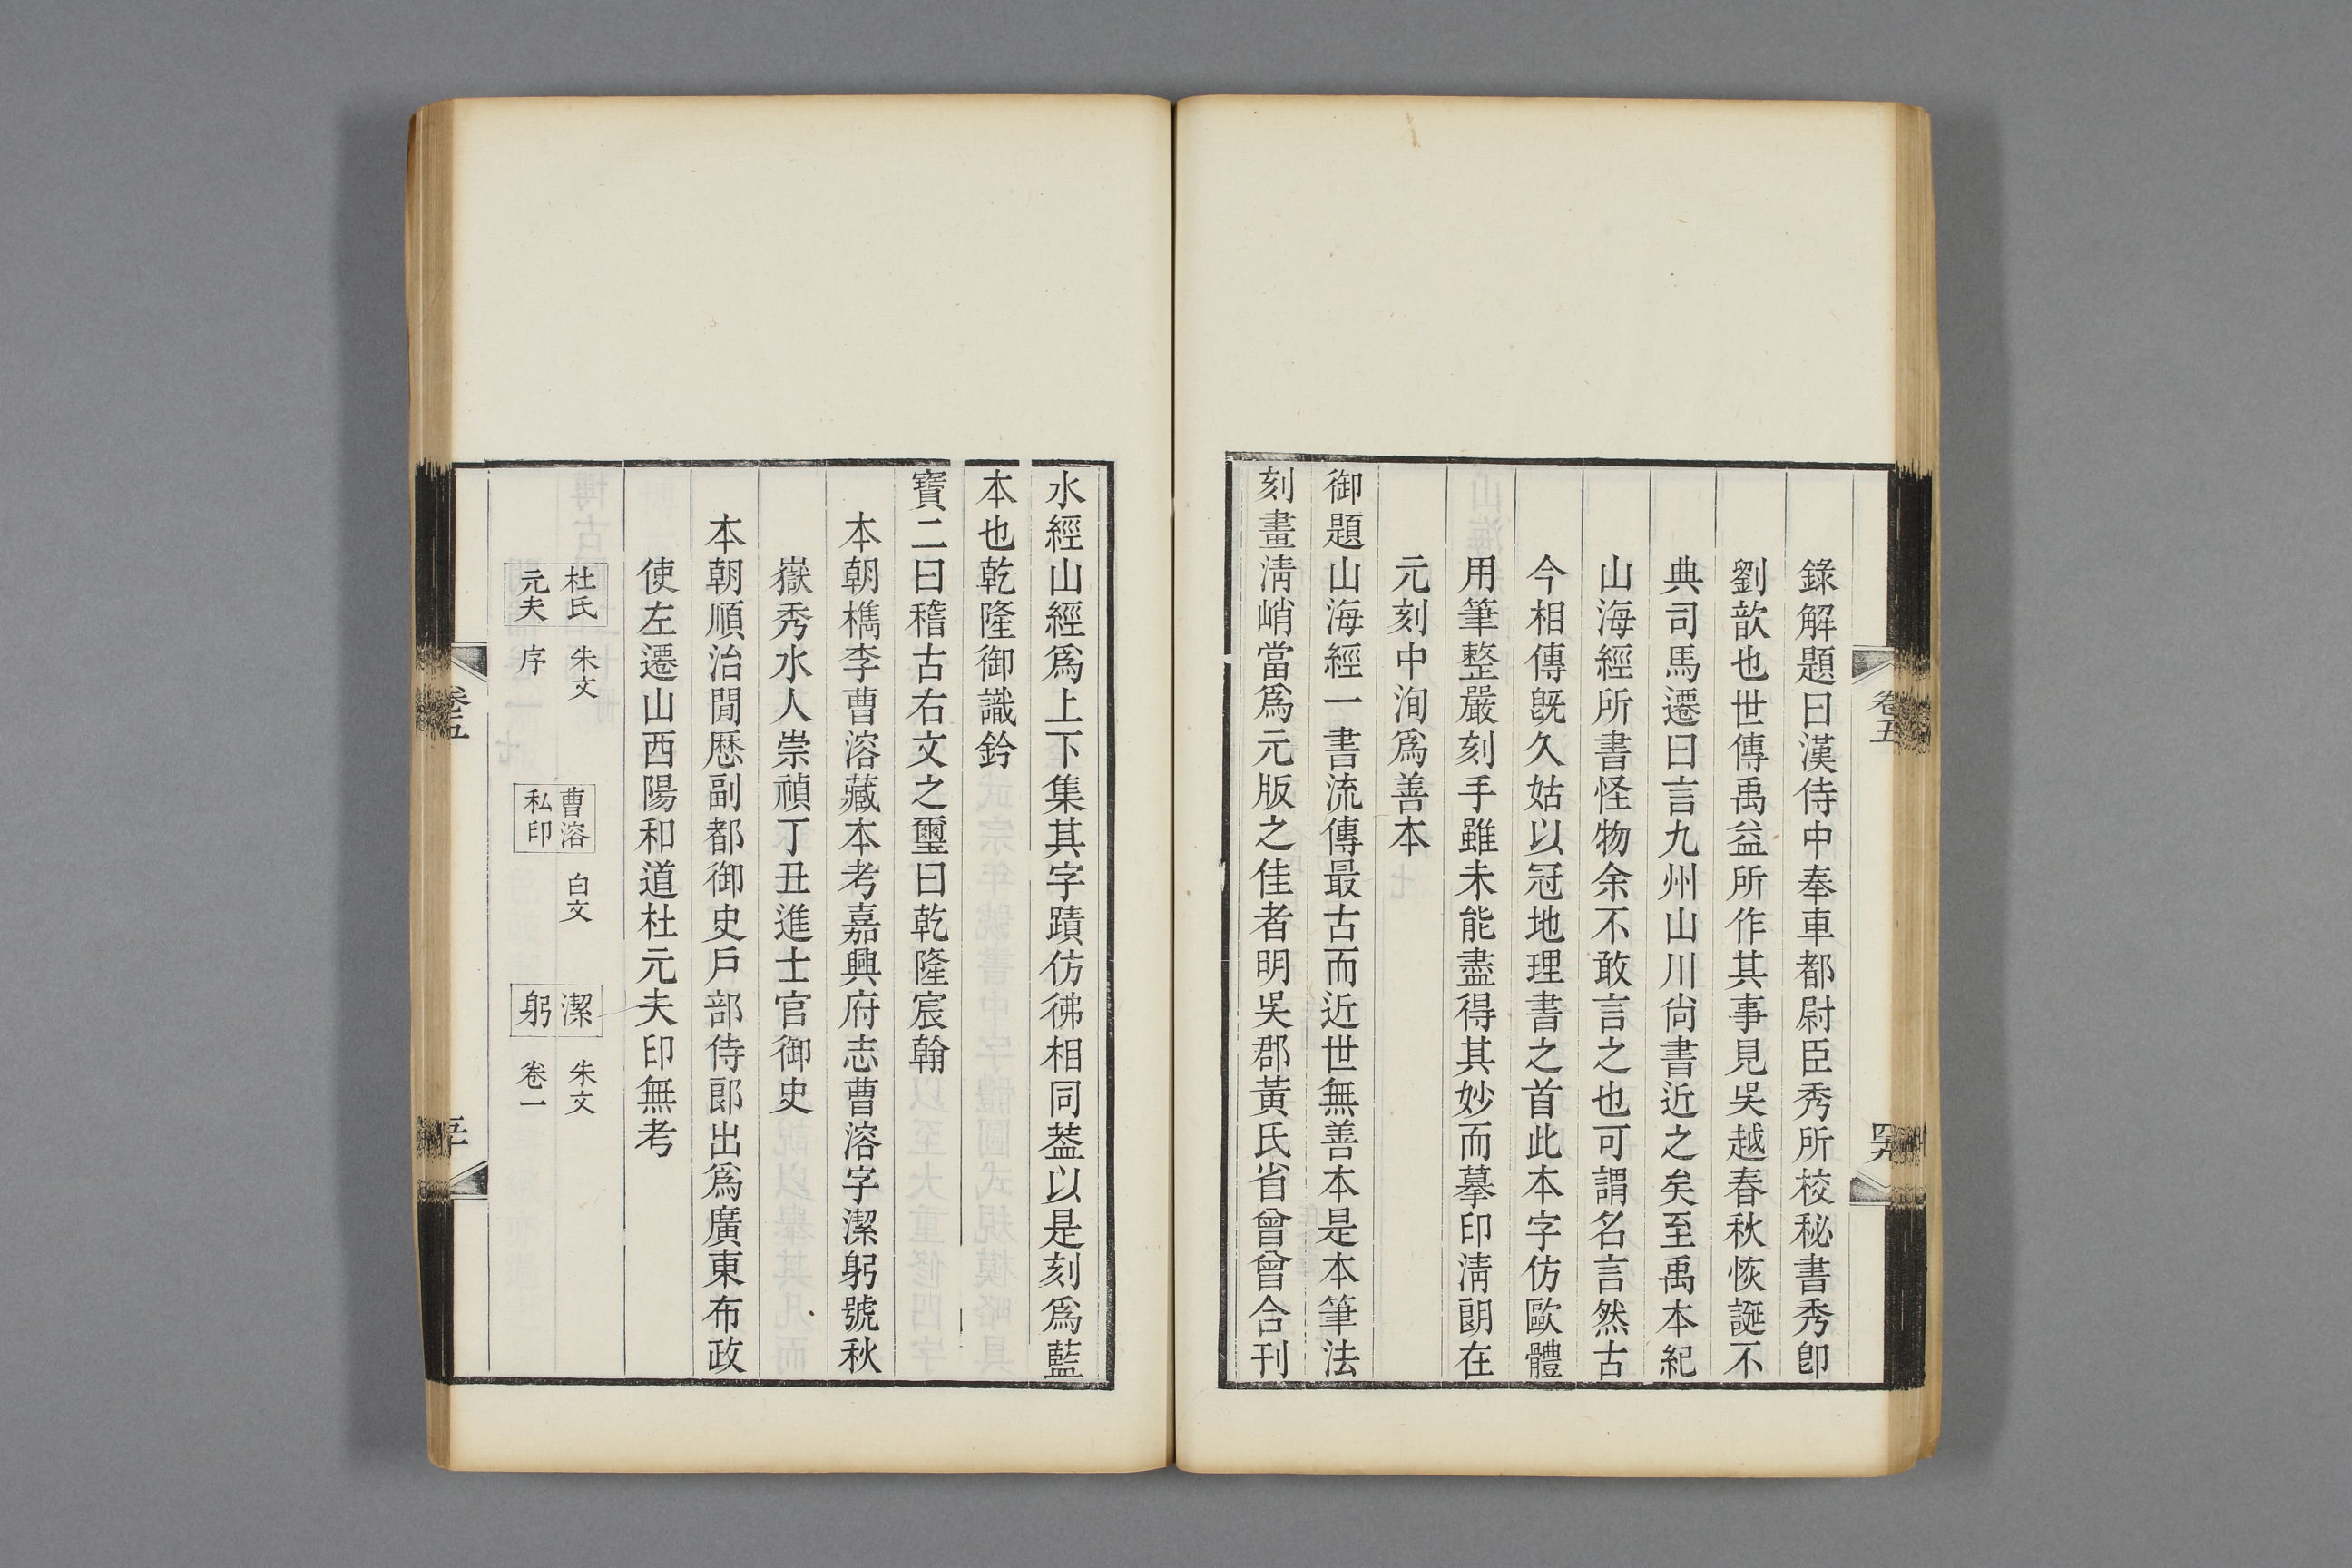 錄解題曰漢侍中奉車都尉臣秀所校秘書秀卽
劉歆也世傳禹益所作其事見吳越春秋恢誕不
典司馬遷曰言九州山川尙書近之矣至禹本紀
山海經所書怪物余不敢言之也可謂名言然古
今相傳旣久姑以冠地理書之首此本字仿歐體
用筆整嚴刻手雖未能盡得其妙而摹印淸朗在
元刻中洵爲善本
御題山海經一書流傳最古而近世無善本是本筆法
刻畫淸峭當爲元版之佳者明吳郡黃氏省曾曾合刊
卷五
水經山經爲上下集其字蹟仿彿相同葢以是刻爲藍
本也乾隆御識鈐
寶二曰稽古右文之璽曰乾隆宸翰
本朝檇李曹溶藏本考嘉興府志曹溶字潔躬號秋
嶽秀水人崇禎丁丑進士官御史
本朝順治閒歷副都御史戶部侍郎出爲廣東布政
使左遷山西陽和道杜元夫印無考
杜氏
元夫
朱文
序
曹溶
私印
白文
潔
躬
朱文
卷一
卷五